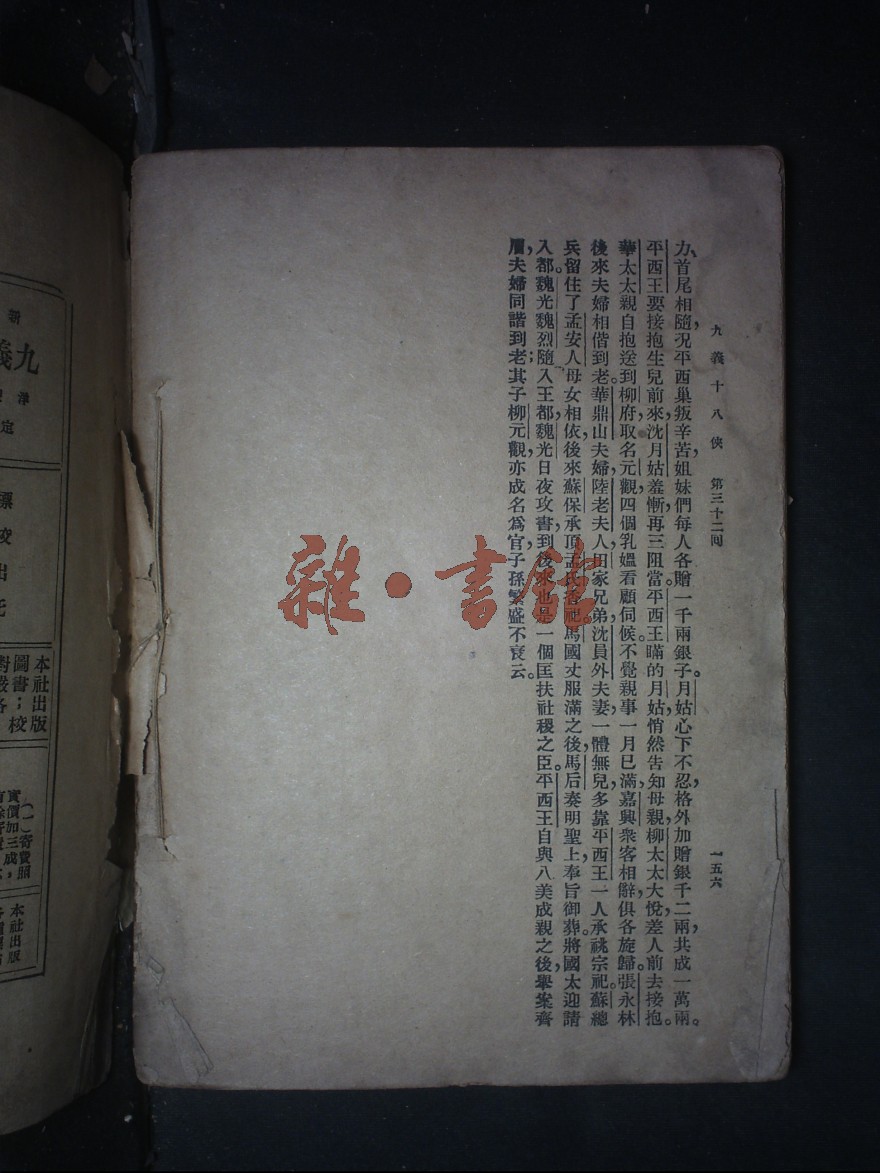 九義十八俠　第三十二回　一五六
力、首尾相隨，況平西巢叛辛苦，姐妹們每人各贈一千兩銀子。月姑心下不忍，格外加贈銀千二兩，共成一萬兩。
平西王要接抱生兒前來，沈月姑羞慚，再三阻當。平西王瞞的月姑，悄然告知母親，柳太太大悅，差人前去接抱。
華太太親自抱送到柳府，取名元觀，四個乳媼看顧伺候。不覺親事一月已滿，嘉興衆客相辭，俱各旋歸。張永林
後來夫婦相偕到老。華鼎山夫婦，陸老夫人，田家兄弟，沈員外夫妻，一體無兒，多靠平西王一人承祧宗祀。蘇總
兵留住了孟安人母女相依，後來蘇保承頂孟氏香祀。馬國丈服滿之後，馬后奏明聖上，奉旨御葬。將國太迎請
入都。魏光魏烈隨入王都，魏光日夜攻書，到後來也是一個匡扶社稷之臣。平西王自與八美成親之後，舉案齊
眉，夫婦同諧到老；其子柳元觀，亦成名爲官，子孫繁盛不衰云。
雜·書館
新
九義
標
校
出
本社出版
圖書；校
對嚴
各
（一）寄費照
實價加三成，
本社出版